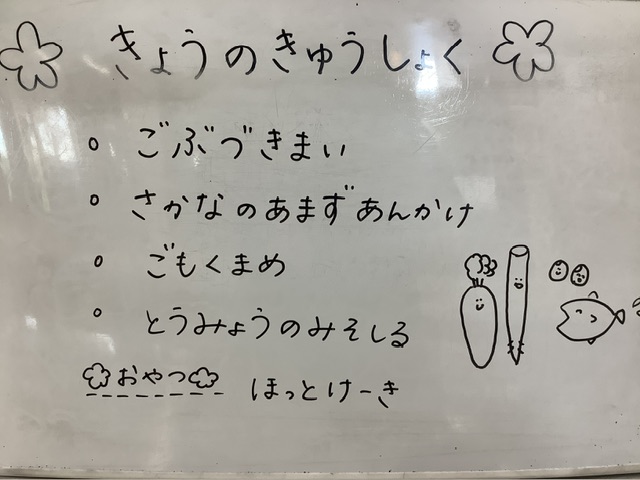 きょうのきゅうしょく
ごぶづきまい
さかなのあまずあんかけ
ごもくまめ
とうみょうのみそしる
おやつ ほっとけーき